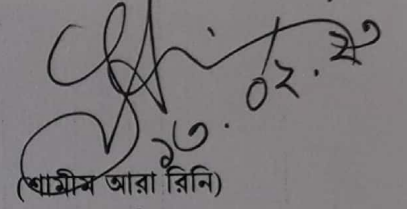 ১৩.০২.২৩
(শামীম আরা রিনি)